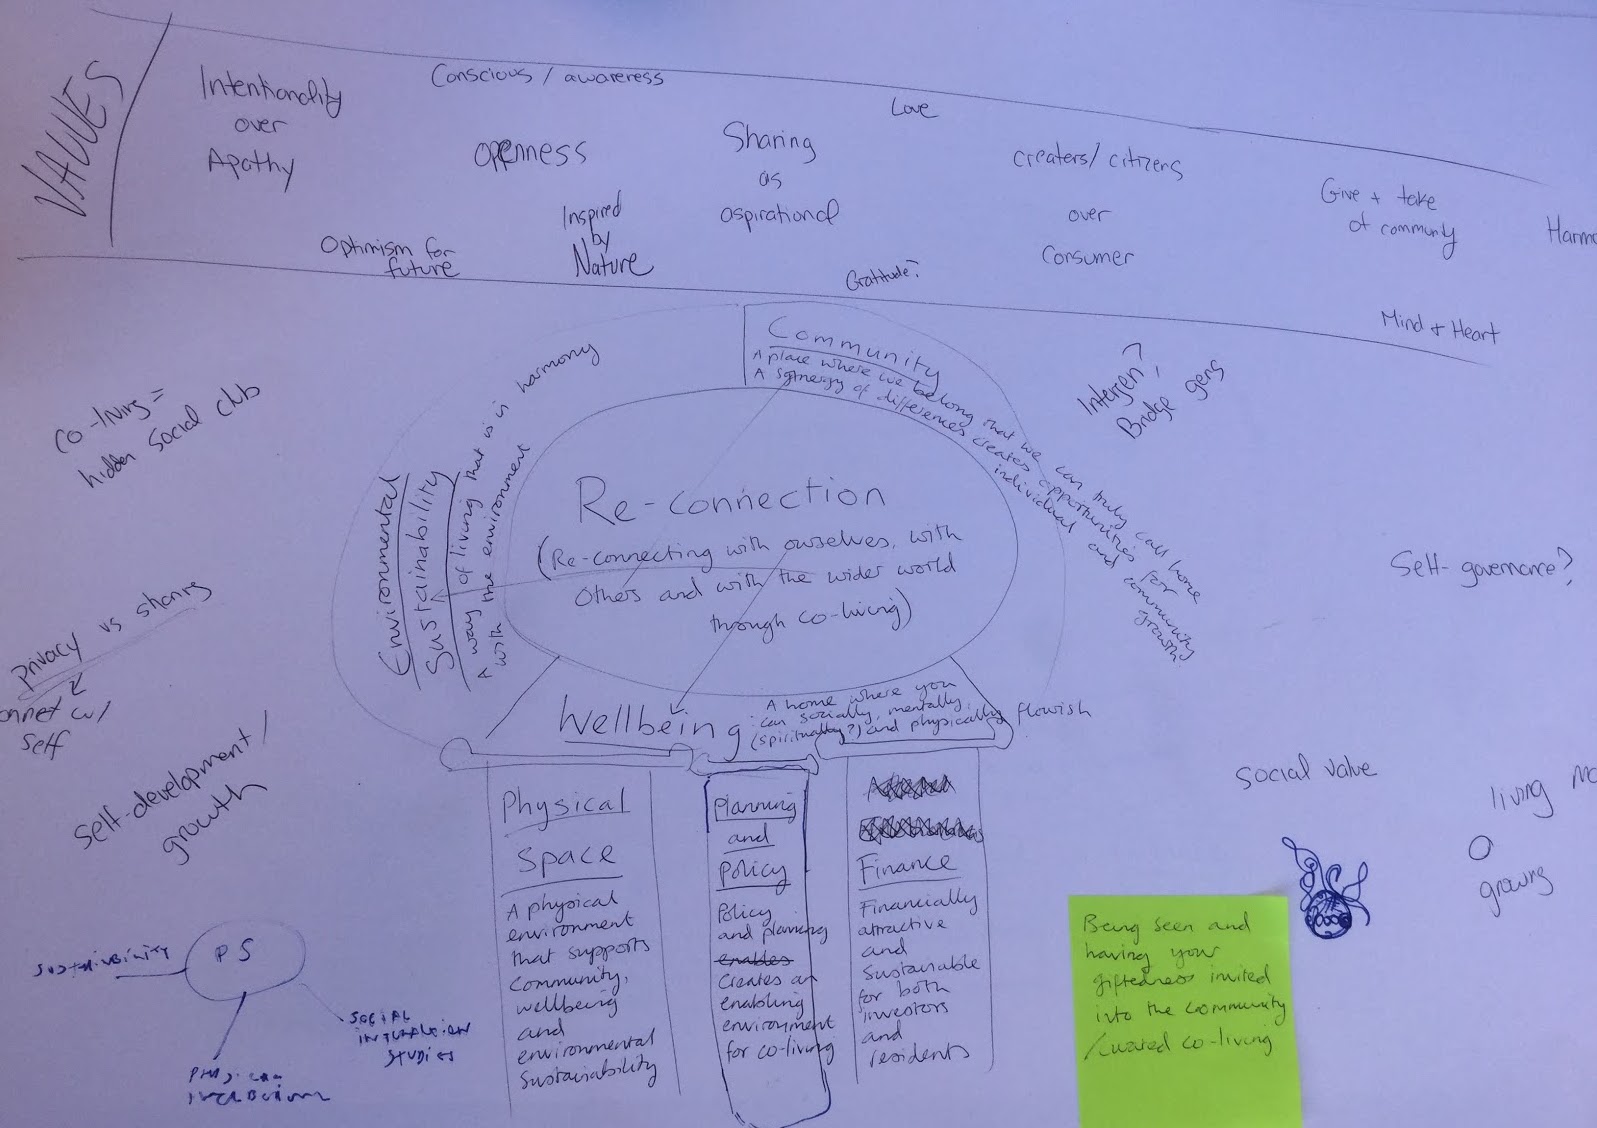 VALUES
Intentionality
over
Apathy
Conscious / awareness
Openness
Optimism for
future
Inspired
by
Nature
Sharing
as
aspirational
Love
Gratitude?
Creaters/ citizens
over
Consumer
Give + take
of community
Harmo
Mind + Heart
Co-living =
hidden social club
Intergen?
Bridge gens
Community
A place where we belong that we can truly call home
A synergy of differences creates opportunities for
individual and community
growth
Environmental
Sustainability
A way of living that is in harmony
with the environment
Re-connection
(Re-connecting with ourselves, with
Others and with the wider world
through co-living)
Self-governance?
Privacy vs sharing
onnet w/
self
Self-development/
growth
Wellbeing
A home where you
can socially, mentally,
(spiritually?) and physically flourish
Physical
Space
A physical
environment
that supports
community,
wellbeing
and
environmental
sustainability
Planning
and
Policy
Policy
and planning
enables
creates an
enabling
environment
for co-living
Finance
Financially
attractive
and
sustainable
for both
investors
and
residents
Social value
living
growing
Being seen and
having your
giftedness invited
into the community
/curated co-living
PS
SOCIAL
STUDIES